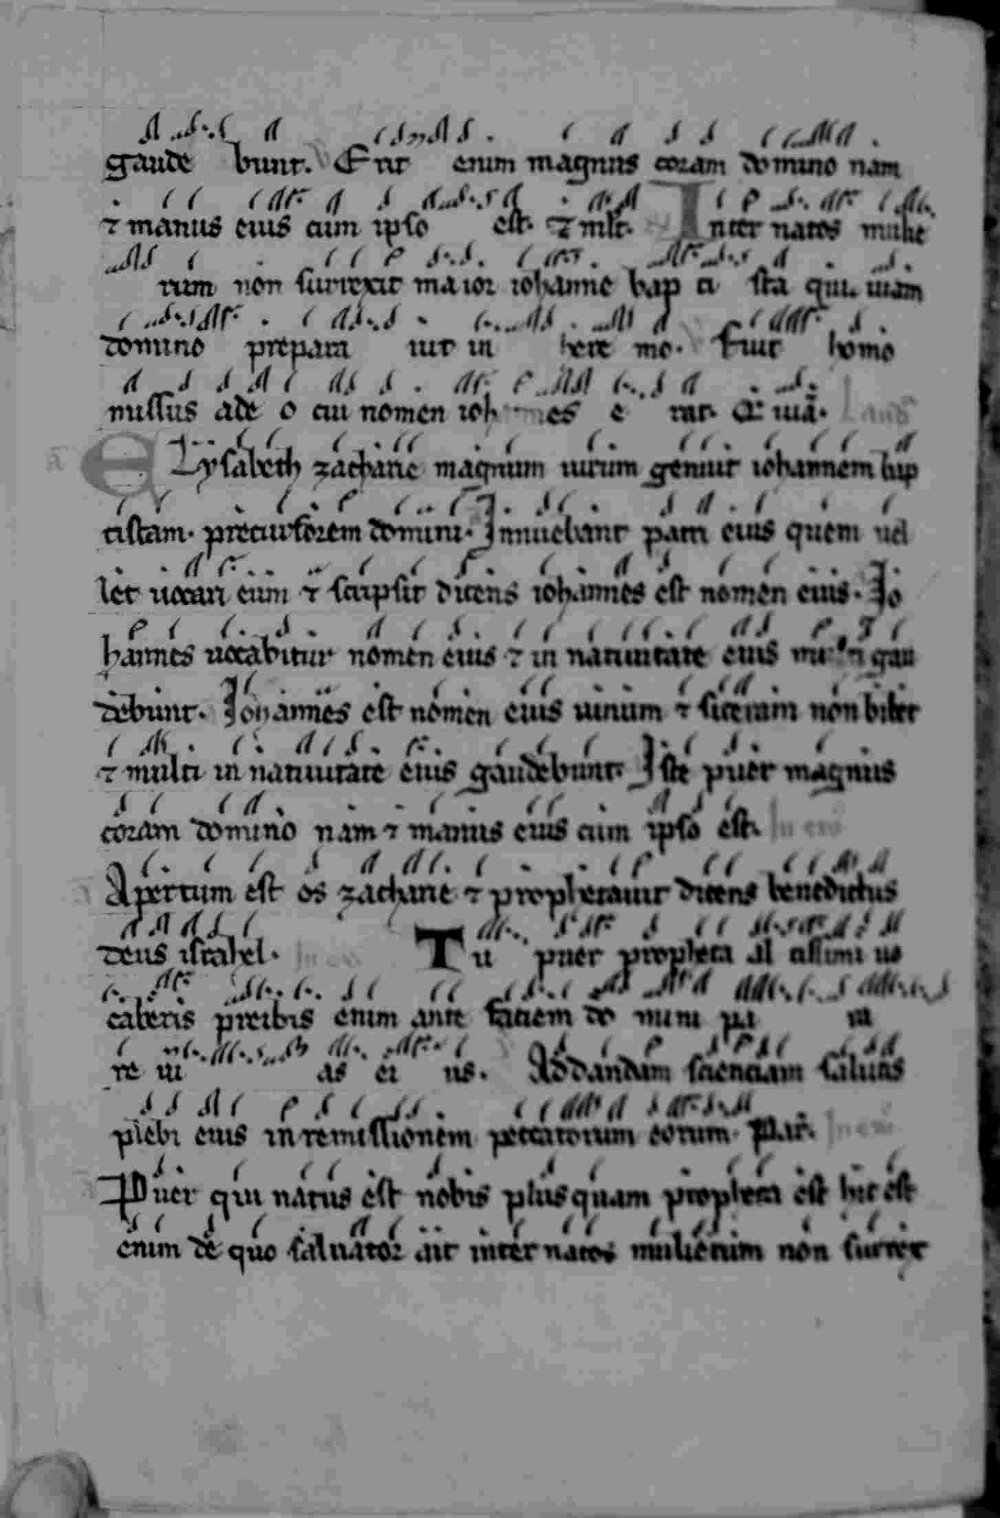 gaude bunt. Erit enim magnus coram domino nam
⁊ manus eius cum ipso est. ⁊ mlt. Inter natos mulie
rum non surrexit maior iohanne bap ti sta qui uiam
domino prepara uit in here mo. Fuit homo
missus a deo cui nomen ioh nnes e rat. Q̄ uiā. Laud
a Elysabeth zacharie magnum uirum genuit iohannem bap
tistam. precursorem domini. Innuebant patri eius quem uel
let uocari eum ⁊ scripsit dicens iohannes est nomen eius. Io
hannes uocabitur nomen eius ⁊ in natiuitate eius mu ti gau
debunt. Iohannes est nomen eius uinum ⁊ siceram non bibet
⁊ multi in natiuitate eius gaudebunt. Iste puer magnus
coram domino nam ⁊ manus eius cum ipso est. In eu
Apertum est os zacharie ⁊ prophetauit dicens benedictus
deus israhel. Tu puer propheta al tissimi uo
caberis preibis enim ante faciem do mini pa ra
re ui as ei us. Ad dandam scienciam salutis
plebi eius in remissionem peccatorum eorum. Par. In eu
Puer qui natus est nobis plus quam propheta est hic est
enim de quo saluator ait inter natos mulierum non surrex